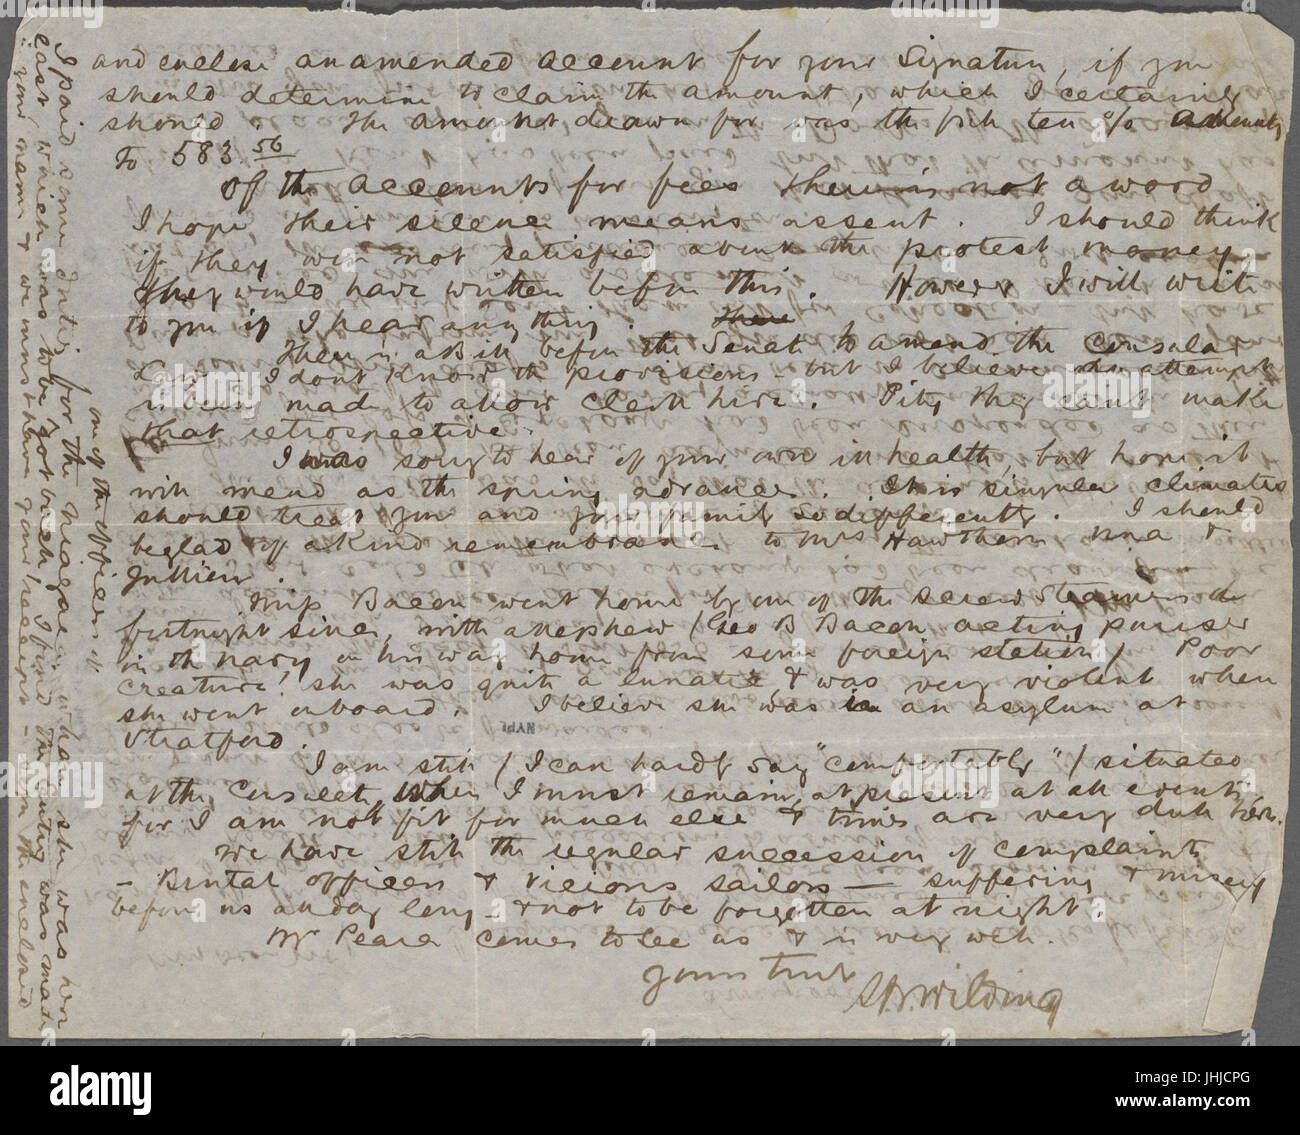 and enclose an amended account for your Signature, if you
should determine to claim the amount, which I certainly
should. The amount drawn for was the fifth ten o/o
to 583.56
Of the accounts for fees there is not a word
I hope their silence means assent. I should think
if they were not satisfied about the protest money
they would have written before this. However I will write
to you if I hear anything. There
There is a Bill before the Senate to amend the Consular
Law - I dont know the provisions - but I believe an attempt
is being made to allow clerk hire. Pity they cant make
that retrospective.
I was sorry to hear of your in health, but hope it
will mend as the spring advances. It is singular climates
should treat you and your family so differently. I should
be glad of a kind remembrance to Mrs Hawthorne Una &
Julian.
Miss Bacon went home by one of the screw Steamers a
fortnight since, with a nephew (Geo B Bacon acting purser
in the navy on his way home from some foreign station) Poor
creature! she was quite a lunatic, & was very violent when
she went onboard. I believe she was in an asylum at
Stratford.
I am still (I can hardly say "comfortably") situated
at the Consulate, where I must remain, at present at all events,
for I am not fit for much else & times are very dull here.
We have still the regular succession of complaints
- Brutal officers & vicious sailors — suffering & misery
before us all day long - & not to be forgotten at night.
Mr Pearce comes to see us & is very well.
Yours truly
S. B. Wilding
I paid some duties for the Niagara in whom she was
cart, which was to be got back, I find the entry was made
your name & we must have your receipt - sign the enclosed
one of the officers
NYPL
alamy
Image ID: JHJCPG
www.alamy.com